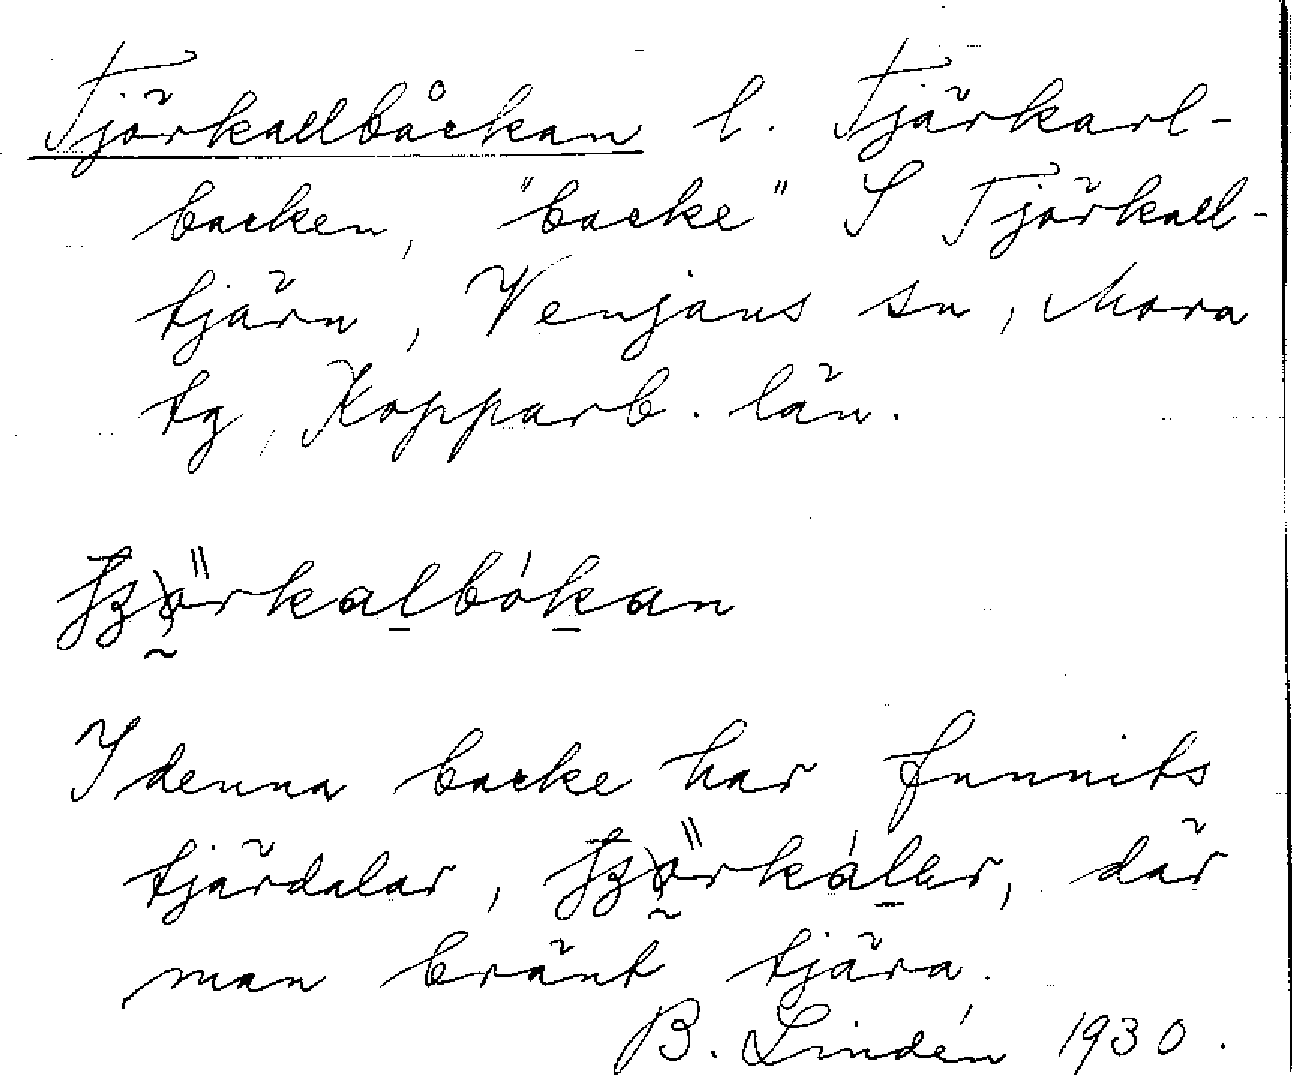 Tjörkallbåckan l. Tjärkarl-
backen, "backe" S Tjörkall-
tjärn, Venjans sn, Mora
tg, Kopparb. län.
I denna backe har funnits
tjärdalar, där
man bränt tjära.
B. Lindén 1930.